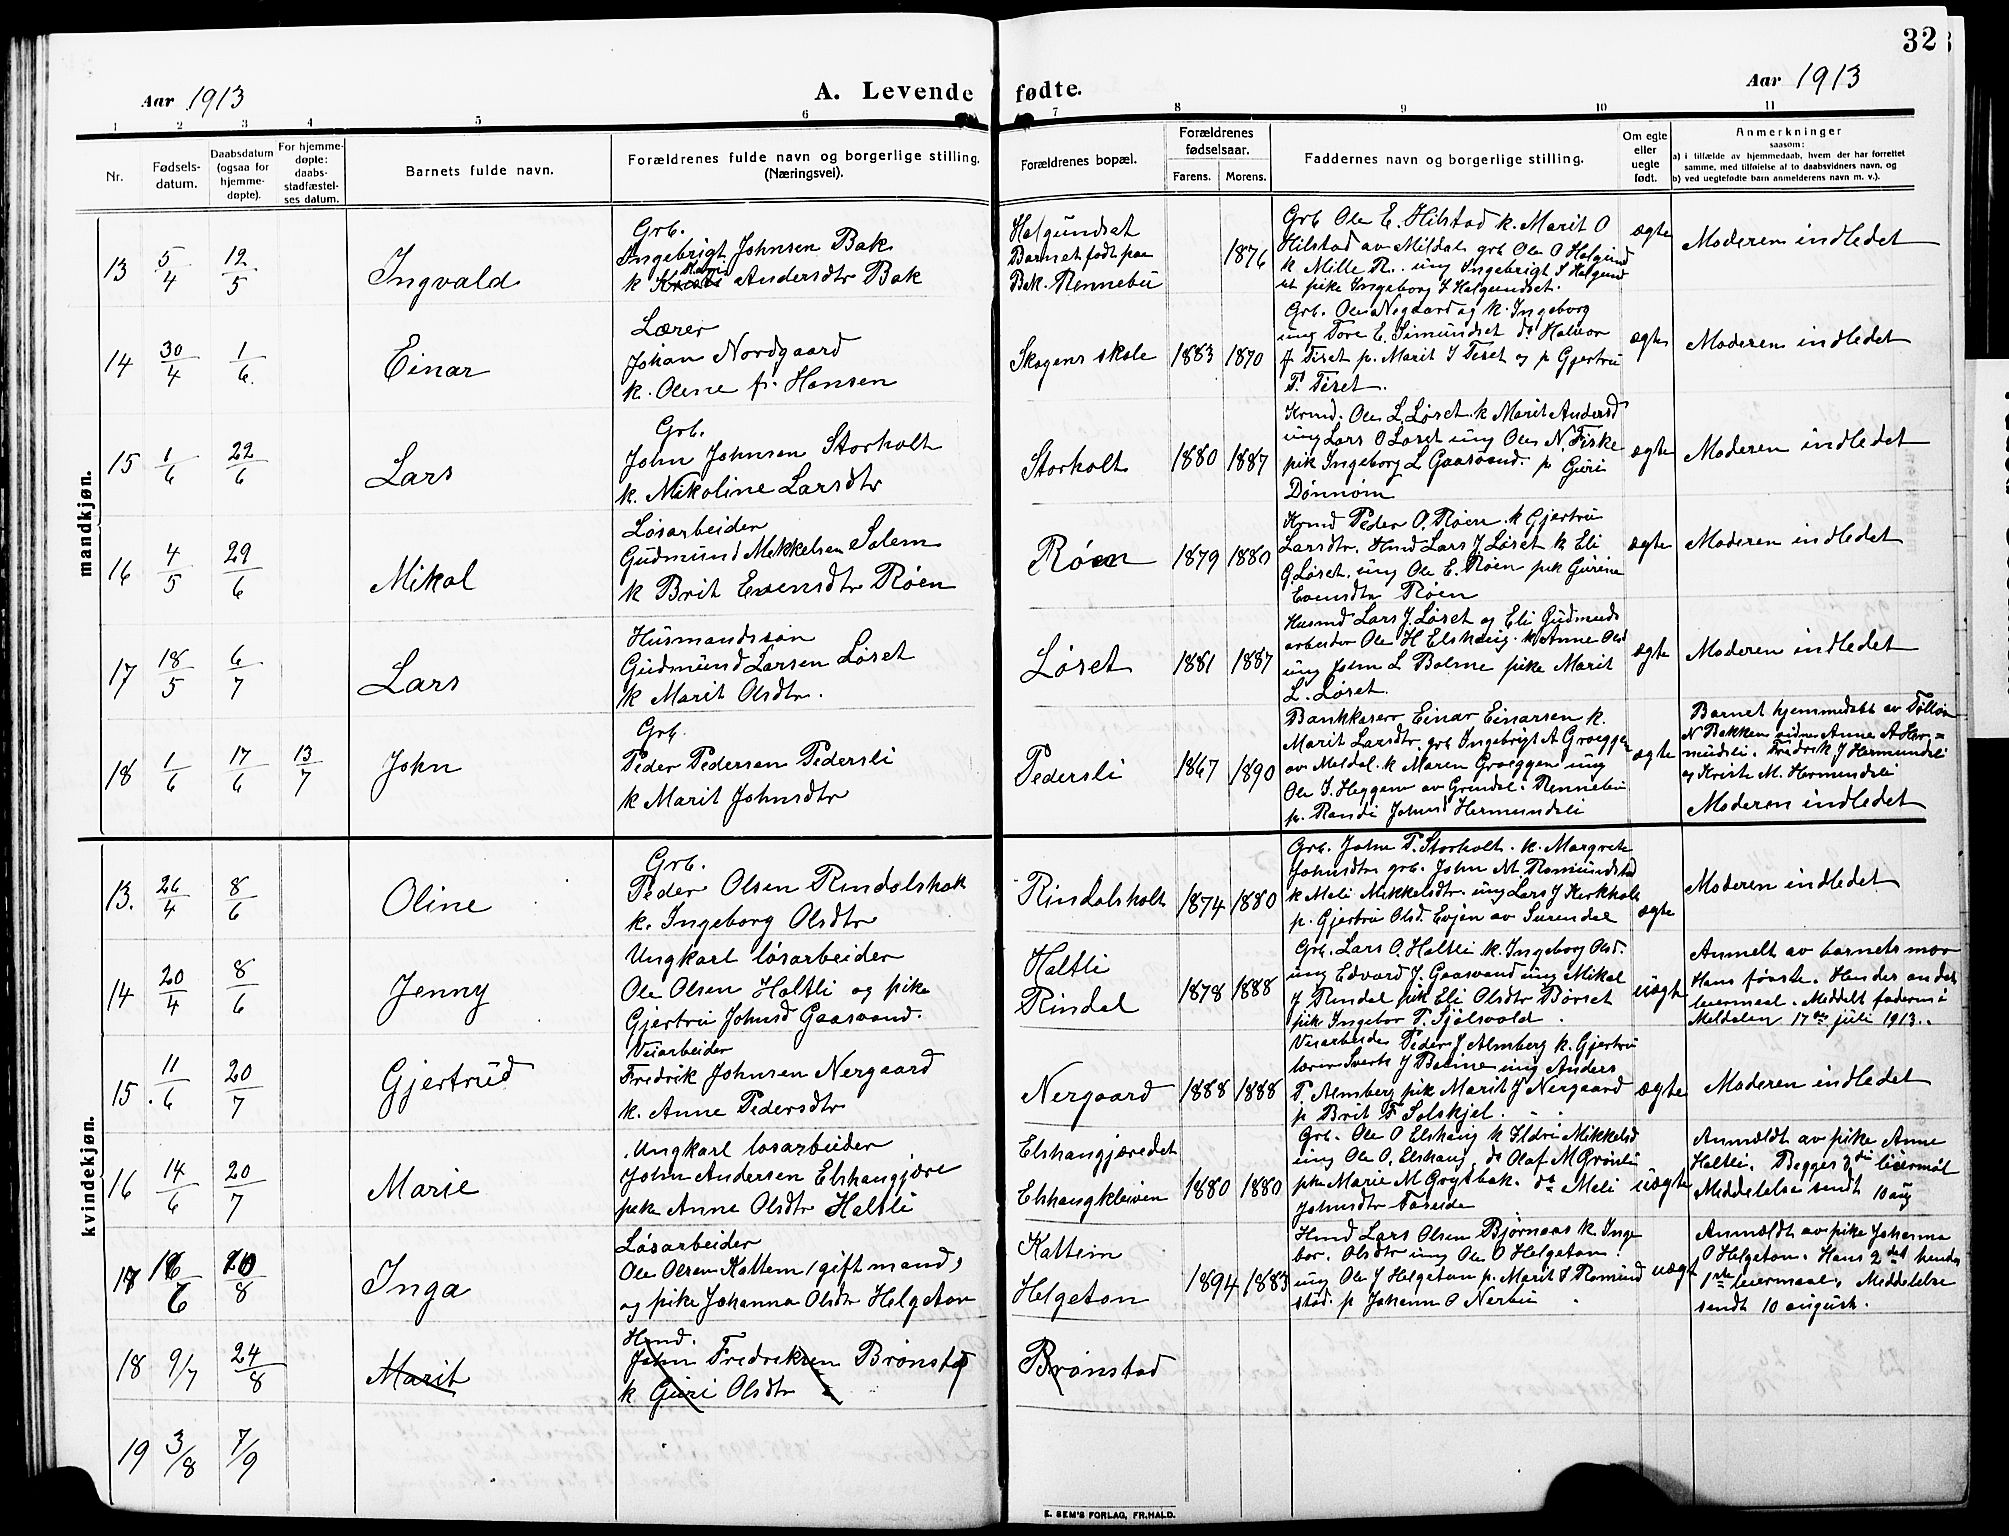 32
Aar 1913
A. Levende fødte.
Aar 1913
1 2 3 4 5 6 7 8 9 10 11
Nr.
Fødsels-
datum.
Daabsdatum
(ogsaa for
hjemme-
døpte).
For hjemme-
døpte:
daabs-
stadfæstel-
ses datum.
Barnets fulde navn.
Forældrenes fulde navn og borgerlige stilling.
(Næringsvei).
Forældrenes bopæl.
Forældrenes
fødselsaar.
Farens. Morens.
Faddernes navn og borgerlige stilling.
Om egte
eller
uegte
født.
Anmerkninger
saasom:
a) i tilfælde av hjemmedaab, hvem der har forrettet
samme, med tilføielse af to daabsvidners navn, og
b) ved uegtefødte barn anmelderens navn m. v.).
mandkjøn.
13 5/4 12/5 Ingvald
Grb.
Ingebrigt Johnsen Bak
k Andersdtr Bak
Helgundset
Barnet født paa
Bak. Rennebu
1876
Grb Ole E. Hilstad k. Marit O
Hilstad av Mildal grb Ole O Helgund
k Mille R.. ung Ingebrigt I Helgund
set pike Ingeborg I Helgundset.
ægte
Moderen indledet
14 30/4 1/6. Einar
Lærer
Johan Nordgaard
k. Oline f. Hansen
Skogens skole
1883 1870
Grb. Ole Negaard og k. Ingeborg
ung Tore E. Simundset do Halvor
J Tiset p. Marit J Teset og p Gjertru
T. Tiset.
ægte
Moderen indledet
15 1/6 22/6 Lars
Grb.
John Johnsen Storholt
k. Mikoline Larsdtr
Storholt
1880 1887
Krmd. Ole L Løset. k Marit Andersd
ung Lars O Løset ung Ole N. Fiske
pik Ingeborg L Gaasvand. p Guri
Dønnem
ægte
Moderen indledet
16 4/5 29/6 Mikal
Løsarbeider
Gudmund Mekkelsen Solem
k Brit Evensdtr Røen
Røen
1879 1880
Krmd Peder O. Røen. k Gjertru
Larsdtr. Hmd Lars J. Løset k Eli
G. Løset, ung Ole E. Røen pik Gurine
Evensdtr Røen
ægte
Moderen indledet
17 18/5 6/7 Lars
Husmandssøn
Gudmund Larsen Løset
k Marit Olsdtr.
Løset
1881 1887
Husmd Lars J. Løset og Eli Gudmunds
arbeider Ole H Elshaug. k Anne Olsd
ung John L Bolme pike Marit
L. Løset.
ægte
Moderen indledet
18 1/6 17/6 13/7 John
Grb.
Peder Pedersen Pedersli
k Marit Johnsdtr
Pedersli
1867 1890
Bankkaserer Einar Einarsen k.
Marit Larsdtr. grb Ingebrigt A Groeggen
av Meldal. k Maren Groeggen ung
Ole I. Heggem av Grindal i Rennebu
p. Randi Johnsd Hermundsli
ægte
Barnet hjemmedøbt av
N Bakken vidner Anne A Her=
mundsli. Fredrik J Hermundsli
og Kristi M. Hermundsli
Moderen indledet
kvindekjøn.
13. 26/4 8/6 Oline
Grb.
Peder Olsen Rindalsholt
k. Ingeborg Olsdtr
Rindalsholt
1874 1880
Grb. John P. Storholt. k. Margrete
Johnsdtr grb. John M. Romundstad
k Meli Mikkelsdtr. ung Lars J Kirkholt
p. Gjertru Olsd. Evjen av Surendal
ægte
Moderen indledet
14 20/4 8/6 Jenny
Ungkarl løsarbeider
Ole Olsen Haltli og pike
Gjertru Johnsd Gaasvand.
Haltli
Rindal
1878 1888
Grb. Lars O. Haltli k. Ingeborg Olsd.
ung Edvard J. Gaasvand ung Mikal
J Rindal pik Eli Olsdtr Børset
pik Ingebor T. Sjølsvold.
uægte
Anmelt av barnets mor
Hans første. Hendes andet
leiermaal. Meddelt faderen i
Meldalen 17de juli 1913.
15. 11/6 20/7 Gjertrud
Veiarbeider
Fredrik Johnsen Nergaard
k. Anne Pedersdtr
Nergaard
1888 1888
Veiarbeider Peder J Almberg k. Gjertru
lærer Sverts J Bolme ung Anders
P. Almberg pik Marit J Nergaard
p Brit F Solskjel.
ægte
Moderen indledet
16 14/6 20/7 Marie
Ungkarl løsarbeider
John Andersen Elshaugjære
pike Anne Olsdtr Haltli
Elshaugjæredet
Elshaugkleiven
1880 1880
Grb. Ole O Elshaug k Ildri Mikkelsd
ung Ole O. Elshaug do Olaf M Grønli
pike Marie M Grytbak. do Meli
Johnsdtr Faseide
uægte
Anmældt av pike Anne
Haltli. Begges 3die leiermål
Meddelelse sendt 10 aug
17 16/6 20/8 Inga
Løsarbeider
Ole Olsen Kattem (gift mand)
og pike Johanna Olsdtr Helgeton
Kattem
Helgeton
1894 1883
Hmd Lars Olsen Bjørnaas k. Inge
bor. Olsdtr ung Ole O Helgeton.
ung Ole J Helgeton p. Marit I Romund
stad. p Johann O Nerbu
uægt
Anmældt av pike Johanna
O Helgeton. Hans 2det hendes
1ste leiermaal. Meddelelse
sendt 10 august.
18 9/7 24/8 Marit
Hmd.
John Fredreksen Brønstad
k Guri Olsdtr
Brønstad
19 3/8 7/9
E. SEM'S FORLAG, FR.HALD.